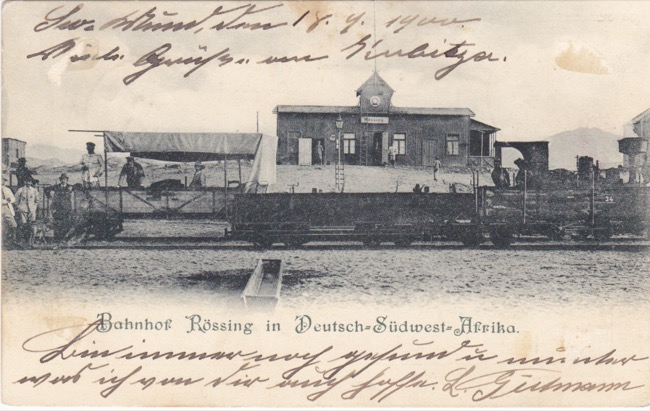 Sw. Mund, den 18. 9. 1900
Viele Grüße an
Rössing
Bahnhof Rössing in Deutsch-Südwest-Afrika.
Bin immer noch gesund u munter
was ich von Dir auch hoffe.